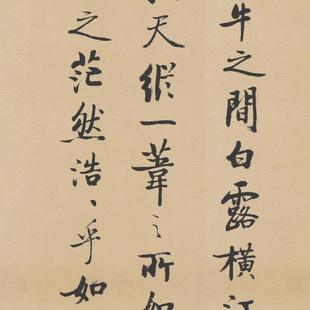 牛之間白露橫江
天縱一葦之所如
之茫然浩〻乎如